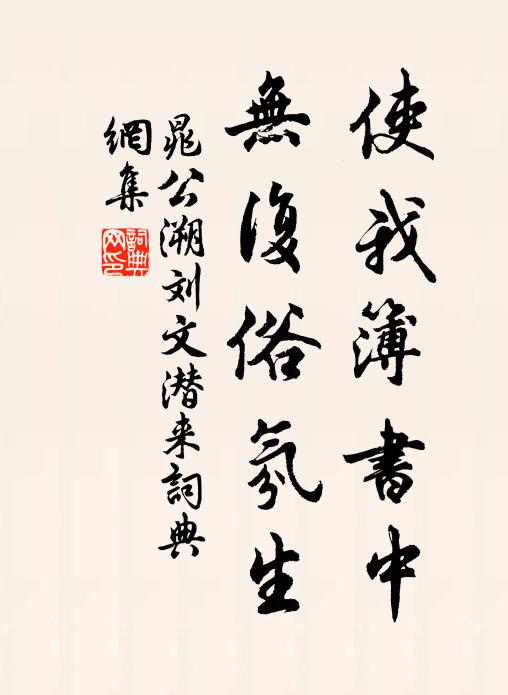 使我簿書中
無復俗氛生
晁公溯刘文潜来詞典
網集
詞典網印